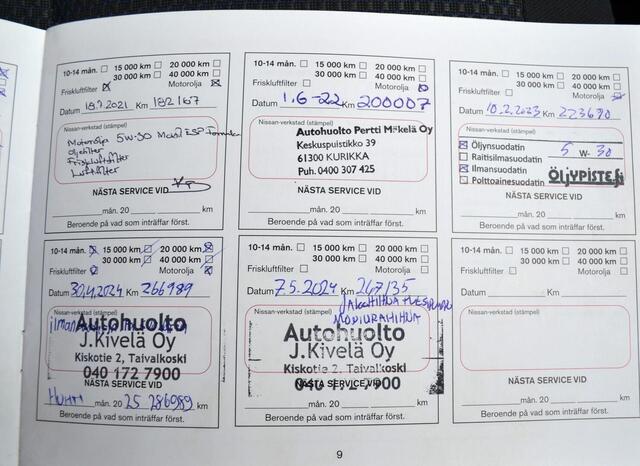 10-14 mån. 15 000 km 20 000 km
30 000 km 40 000 km
Friskluftfilter Motorolja
Datum 18.9.2021 Km 182167
Nissan-verkstad (stämpel)
Motoroljs 5W-30 Mobil ESP Formula
Oljefilter
Friskluftfilter
Luftfilter
NÄSTA SERVICE VID
mån. 20 km
Beroende på vad som inträffar först.
10-14 mån. 15 000 km 20 000 km
30 000 km 40 000 km
Friskluftfilter Motorolja
Datum 1.6-22 Km 200007
Nissan-verkstad (stämpel)
Autohuolto Pertti Mäkelä Oy
Keskuspuistikko 39
61300 KURIKKA
Puh. 0400 307 425
NÄSTA SERVICE VID
mån. 20 km
Beroende på vad som inträffar först.
10-14 mån. 15 000 km 20 000 km
30 000 km 40 000 km
Friskluftfilter Motorolja
Datum 10.2.2023 Km 223690
Nissan-verkstad (stämpel)
Öljynsuodatin 5 W- 30
Raitisilmasuodatin
Ilmansuodatin
Polttoainesuodatin ÖLJYPISTE.fi
NÄSTA SERVICE VID
mån. 20 km
Beroende på vad som inträffar först.
10-14 mån. 15 000 km 20 000 km
30 000 km 40 000 km
Friskluftfilter Motorolja
Datum 30.4.2024 Km 266989
Nissan-verkstad (stämpel)
Autohuolto
J.Kivelä Oy
Kiskotie 2, Taivalkoski
040 172 7900
NÄSTA SERVICE VID
Huhti mån. 20 25 286989 km
Beroende på vad som inträffar först.
10-14 mån. 15 000 km 20 000 km
30 000 km 40 000 km
Friskluftfilter Motorolja
Datum 7.5.2024 Km 267135
Nissan-verkstad (stämpel)
MONIURAHIHNA
Autohuolto
J. Kivelä Oy
Kiskotie 2, Taivalkoski
NÄSTA SERVICE VID
mån. 20 km
Beroende på vad som inträffar först.
10-14 mån. 15 000 km 20 000 km
30 000 km 40 000 km
Friskluftfilter Motorolja
Datum Km
Nissan-verkstad (stämpel)
NÄSTA SERVICE VID
mån. 20 km
Beroende på vad som inträffar först.
9